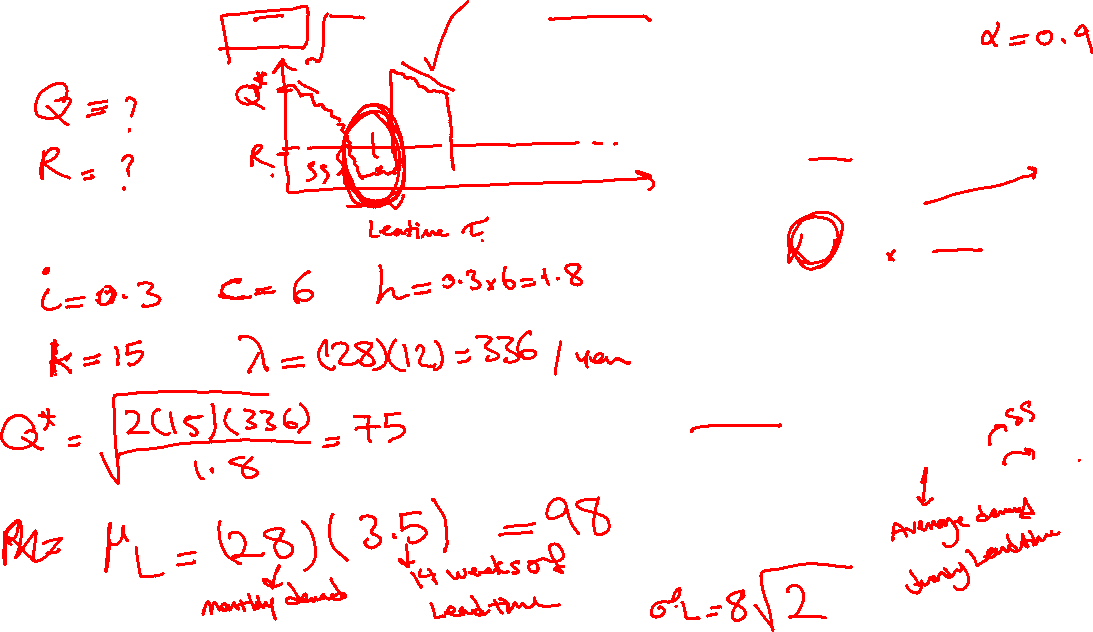 α = 0.9
Q = ?
R = ?
Q*
R
SS
L
Leatime τ
i = 0.3 c = 6 h = 0.3x6 = 1.8
k = 15 λ = (28)(12) = 336 / year
Q* = √(2(15)(336)/1.8) = 75
SS
μL = (28)(3.5) = 98
monthly demand
14 weeks of
Leadtime
Average demand
during Leadtime
σL = 8√2